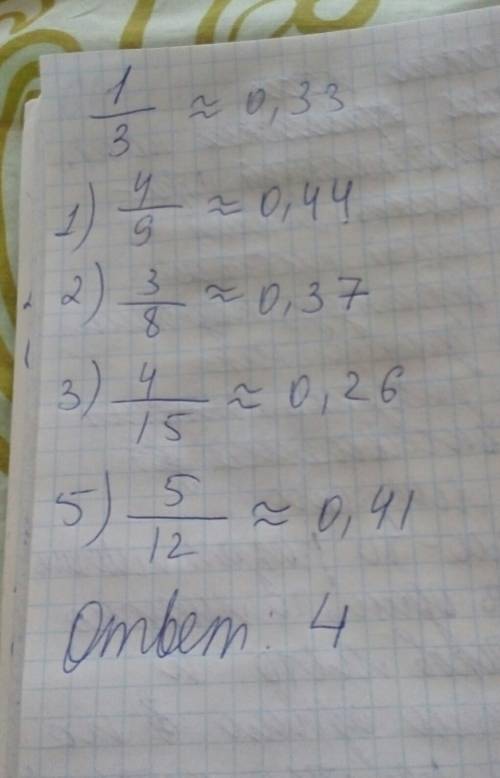 1/3 ≈ 0,33
1) 4/9 ≈ 0,44
2) 3/8 ≈ 0,37
3) 4/15 ≈ 0,26
5) 5/12 ≈ 0,41
Ответ: 4